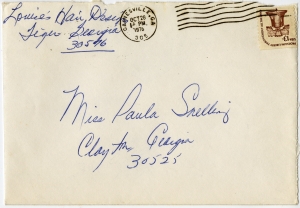 Louise's Hair Design
Tiger, Georgia
30576
GAINESVILLE, GA
OCT 26
PM
1976
305
13c
Miss Paula Snelling
Clayton Georgia
30525